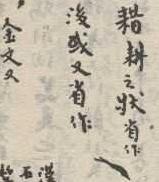 耤耕之狀省作
後或又省作
金文又